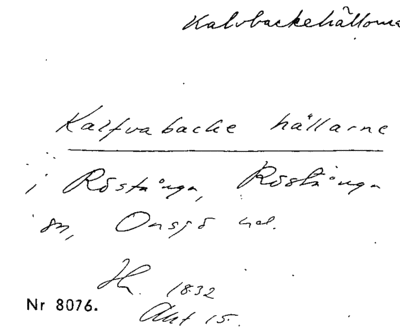 Kalvbackehällorna
Kalfvabacke hällarne
i Röstånga, Röstånga
sn, Onsjö hd.
Hr. 1832
Nr 8076.
Akt 15.